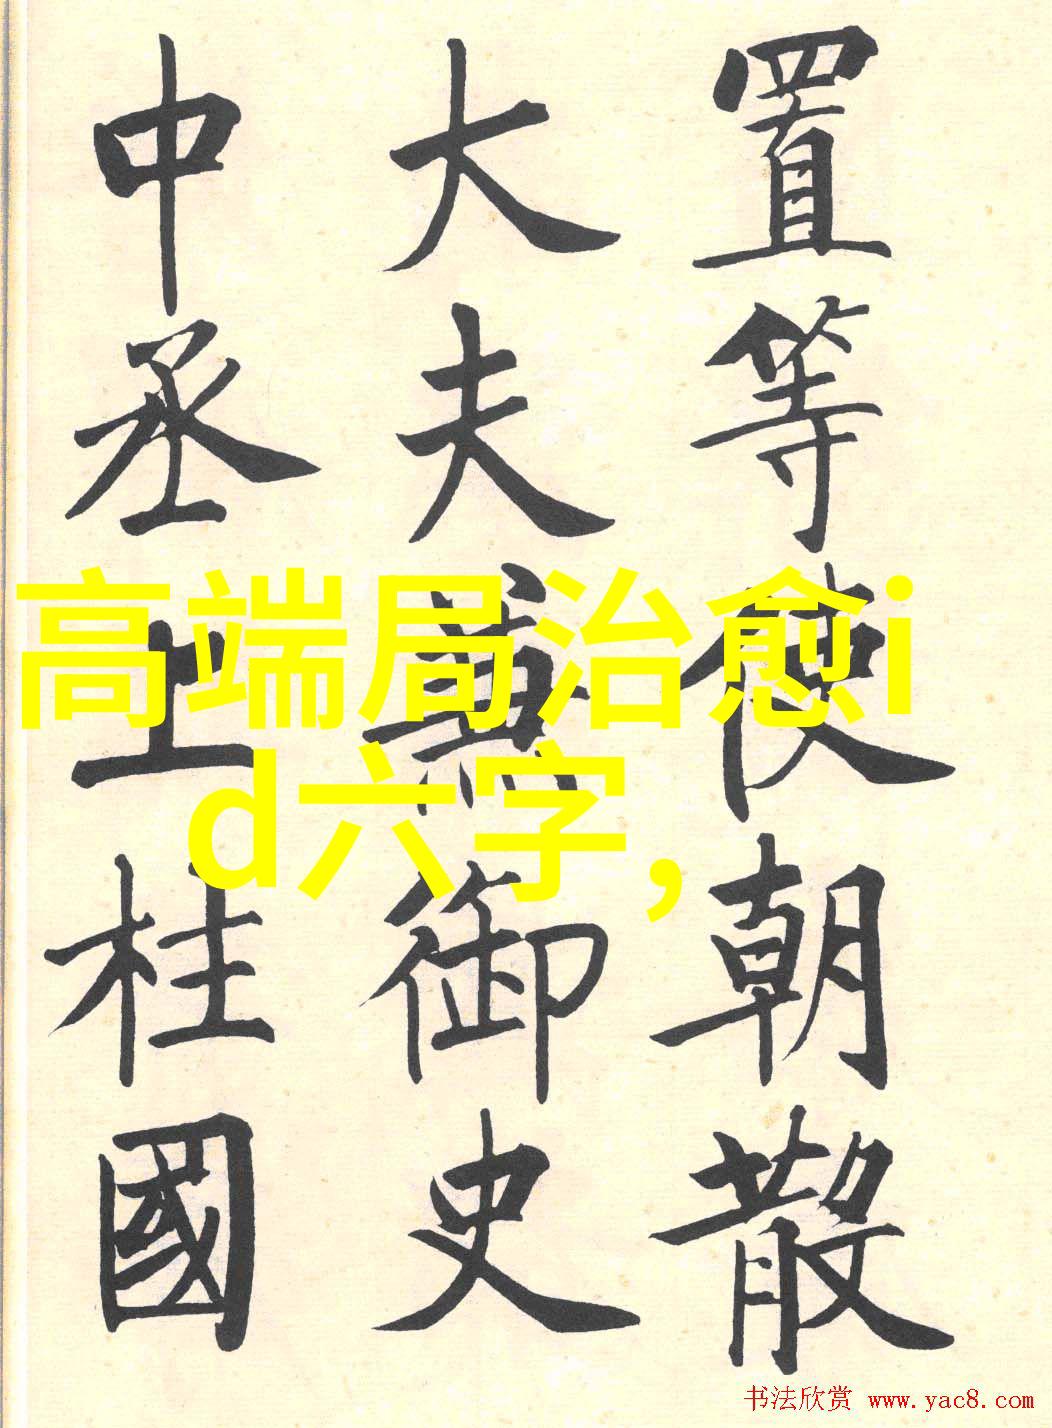 置等使朝散
大夫兼御史
中丞上柱國
高端局治愈i
d六字，
书法欣赏 www.yac8.com